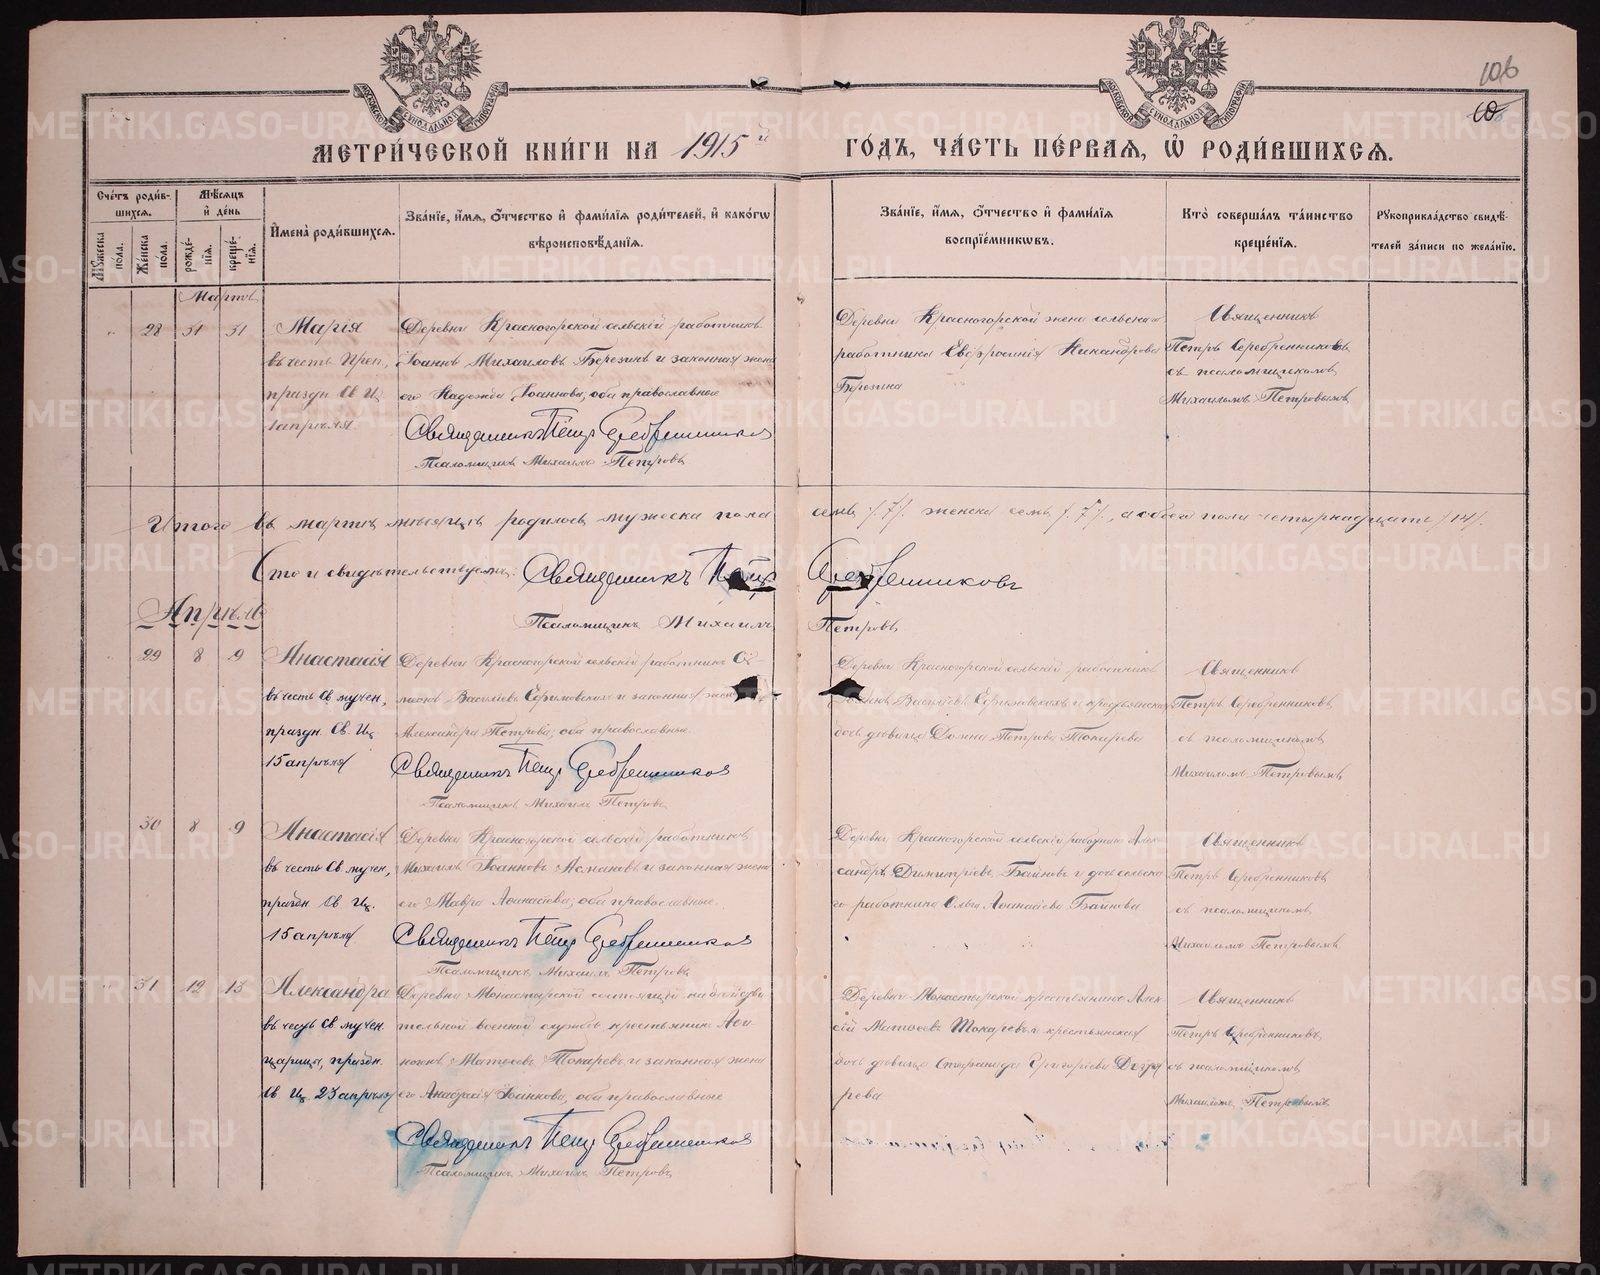 106
МЕТРИЧЕСКОЙ КНИГИ НА 1915й ГОДЪ, ЧАСТЬ ПЕРВАЯ, Ѡ РОДИВШИХСЯ.
МОСКОВСКОЙ СѴНОДАЛЬНОЙ ТИПОГРАФІИ
МОСКОВСКОЙ СѴНОДАЛЬНОЙ ТИПОГРАФІИ
Счетъ родившихся.
Мужеска пола.
Женска пола.
Мѣсяцъ и день
рожденія.
крещенія.
Имена родившихся.
Званіе, имя, отчество и фамилія родителей, и какогѡ вѣроисповѣданія.
Званіе, имя, отчество и фамилія воспріемникѡвъ.
Кто совершалъ таинство крещенія.
Рукоприкладство свидѣтелей записи по желанію.
Мартъ
28 31 31
Марія
въ честь Преп.,
праздн. Св. Ц.
1 апрѣля
Деревни Красногорской сельскій работникъ
Іоаннъ Михаиловъ Березинъ и законная жена
его Надежда Іоаннова, оба православные
Священникъ Петръ Серебренниковъ
Псаломщикъ Михаилъ Петровъ
Деревни Красногорской жена сельскаго
работника Евфросинія Никандрова
Березина
Священникъ
Петръ Серебренниковъ
съ псаломщикомъ
Михаиломъ Петровымъ
Итого въ мартѣ мѣсяцѣ родилось мужеска пола семь /7/ женска семь /7/, а обоего пола четырнадцать /14/.
Сто и свидѣтельствуемъ: Священникъ Петръ Серебренниковъ
Псаломщикъ Михаилъ Петровъ
Апрѣль
29 8 9
Анастасія
въ честь Св. мучен.,
праздн. Св. Ц.
15 апрѣля
Деревни Красногорской сельскій работникъ
Василіевъ Ефимовскихъ и законная жена
Александра Петрова, оба православные.
Священникъ Петръ Серебренниковъ
Псаломщикъ Михаилъ Петровъ
Деревни Красногорской сельскій работникъ
Василіевъ Ефимовскихъ и крестьянская
дочь дѣвица Домна Петрова Токарева
Священникъ
Петръ Серебренниковъ
съ псаломщикомъ
Михаиломъ Петровымъ
30 8 9
Анастасія
въ честь Св. мучен.,
праздн. Св. Ц.
15 апрѣля
Деревни Красногорской сельскій работникъ
Михаилъ Іоанновъ и законная жена
его Мавра Аѳанасіева, оба православные.
Священникъ Петръ Серебренниковъ
Псаломщикъ Михаилъ Петровъ
Деревни Красногорской сельскій работникъ Алек-
сандръ Димитріевъ Байновъ и дочь сельска-
го работника Ольга Аѳанасіева Байнова
Священникъ
Петръ Серебренниковъ
съ псаломщикомъ
Михаиломъ Петровымъ
31 12 13
Александра
въ честь Св. мучен.
царицы, праздн.
Св. Ц. 23 апрѣля
Деревни Монастырской состоящій на дѣйстви-
тельной военной службѣ крестьянинъ
Матѳеевъ Токаревъ и законная жена
его Іоаннова, оба православные
Священникъ Петръ Серебренниковъ
Псаломщикъ Михаилъ Петровъ
Деревни Монастырской крестьянинъ Алек-
сій Матѳеевъ Токаревъ и крестьянская
дочь дѣвица Стефанида Григоріева
Священникъ
Петръ Серебренниковъ
съ псаломщикомъ
Михаиломъ Петровымъ
METRIKI.GASO-URAL.RU